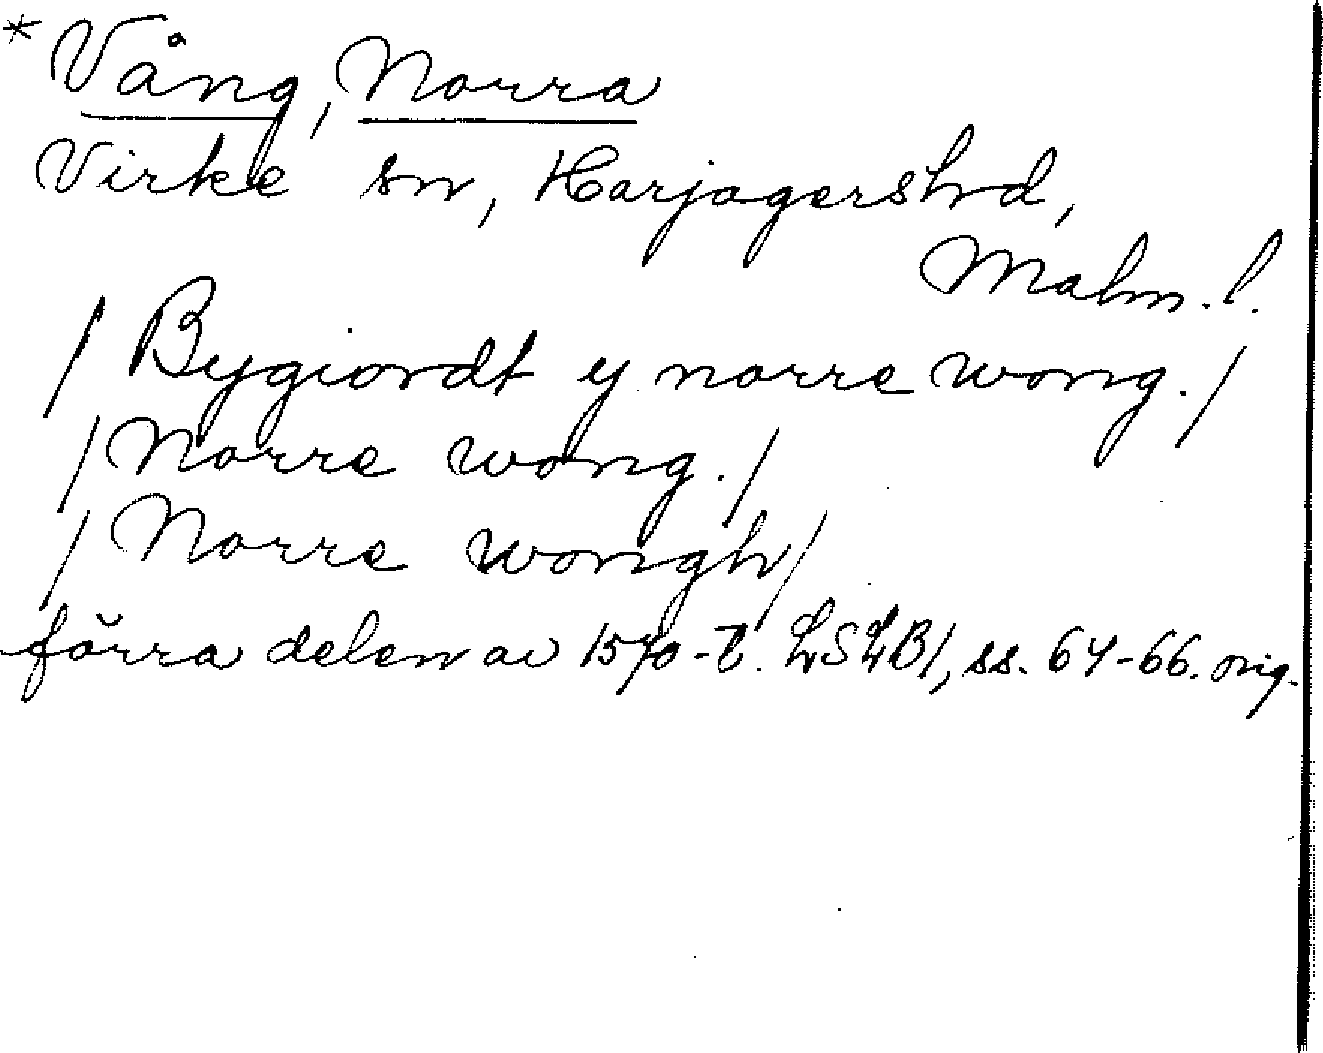 * Vång, Norra
Virke sn, Harjagershd,
Malm. l.
/ Bygiordt y norre wong. /
/ Norre wong. /
/ Norre wongh /
förra delen av 1570-t. LSLB1, ss. 64-66. orig.